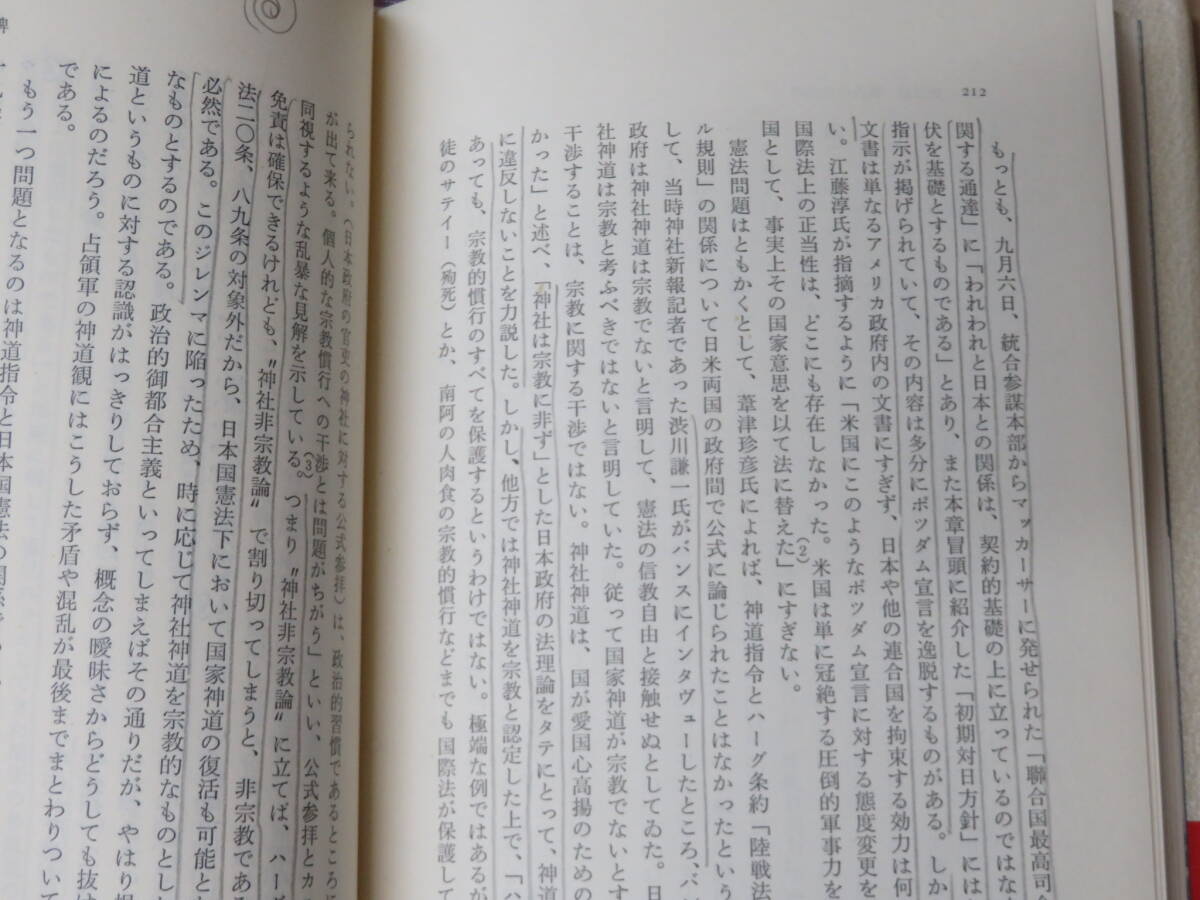 212
もっとも、九月六日、統合参謀本部からマッカーサーに発せられた「聯合国最高司令
関する通達」に「われわれと日本との関係は、契約的基礎の上に立っているのではな
伏を基礎とするものである」とあり、また本章冒頭に紹介した「初期対日方針」には
指示が掲げられていて、その内容は多分にポツダム宣言を逸脱するものがある。しか
文書は単なるアメリカ政府内の文書にすぎず、日本や他の連合国を拘束する効力は何
い。江藤淳氏が指摘するように「米国にこのようなポツダム宣言に対する態度変更を
国際法上の正当性は、どこにも存在しなかった。米国は単に冠絶する圧倒的軍事力を
国として、事実上その国家意思を以て法に替えた」にすぎない。(2)
憲法問題はともかくとして、葦津珍彦氏によれば、神道指令とハーグ条約「陸戦法
ル規則」の関係について日米両国の政府間で公式に論じられたことはなかったという
して、当時神社新報記者であった渋川謙一氏がバンスにインタヴューしたところ、バ
政府は神社神道は宗教でないと言明して、憲法の信教自由と接触せぬとしてゐた。日
社神道は宗教と考ふべきではないと言明していた。従って国家神道が宗教でないとす
干渉することは、宗教に関する干渉ではない。神社神道は、国が愛国心高揚のための
かった」と述べ、「神社は宗教に非ず」とした日本政府の法理論をタテにとって、神道
に違反しないことを力説した。しかし、他方では神社神道を宗教と認定した上で、「ハ
あっても、宗教的慣行のすべてを保護するというわけではない。極端な例ではあるが
徒のサテイー(殉死)とか、南阿の人肉食の宗教的慣行などまでも国際法が保護して
られない。(日本政府の官吏の神社に対する公式参拝)は、政治的習慣であるところに
が出て来る。個人的な宗教慣行への干渉とは問題がちがう」といい、公式参拝とカ
同視するような乱暴な見解を示している。(3)つまり〝神社非宗教論〟に立てば、ハーグ
免責は確保できるけれども、〝神社非宗教論〟で割り切ってしまうと、非宗教である
法二〇条、八九条の対象外だから、日本国憲法下において国家神道の復活も可能と
必然である。このジレンマに陥ったため、時に応じて神社神道を宗教的なものとし
なものとするのである。政治的御都合主義といってしまえばその通りだが、やはり根
道というものに対する認識がはっきりしておらず、概念の曖昧さからどうしても抜け
によるのだろう。占領軍の神道観にはこうした矛盾や混乱が最後までまとわりついて
である。
もう一つ問題となるのは神道指令と日本国憲法の関係で